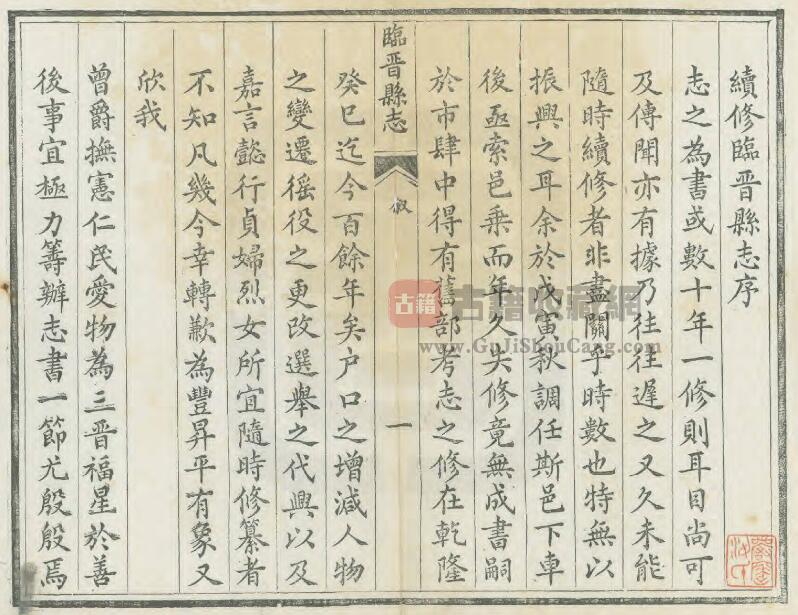 續修臨晉縣志序
志之為書或數十年一修則耳目尚可
及傳聞亦有據乃往往遲之又久未能
隨時續修者非盡關乎時數也特無以
振興之耳余於戊寅秋調任斯邑下車
後亟索邑乘而年久失修竟無成書嗣
於市肆中得有舊部考志之修在乾隆
臨晉縣志
敘
一
癸巳迄今百餘年矣戶口之增減人物
之變遷徭役之更改選舉之代興以及
嘉言懿行貞婦烈女所宜隨時修纂者
不知凡幾今幸轉歉為豐昇平有象又
欣我
曾爵撫憲仁民愛物為三晉福星於善
後事宜極力籌辦志書一節尤殷殷焉
古籍
古籍收藏網
www.GuJiShouCang.com